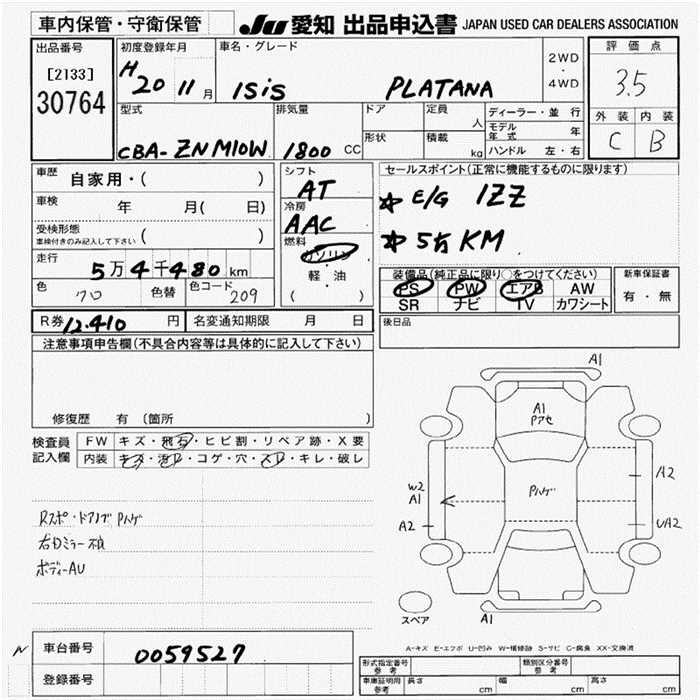 車内保管・守衛保管
JU 愛知 出品申込書 JAPAN USED CAR DEALERS ASSOCIATION
出品番号
[2133]
30764
初度登録年月
H20 11月
車名・グレード
ISIS PLATANA
2WD
・
4WD
評価点
3.5
外装 内装
C B
型式
CBA-ZNM10W
排気量
1800 CC
ドア
定員
人
形状
積載
kg
ディーラー・並行
モデル年式 年
ハンドル 左・右
車歴 自家用・( )
車検 年 月( 日)
受検形態
車検付きのみ記入して下さい ( )
走行
5万4千480km
色
クロ
色替
色コード
209
シフト
AT
冷房
AAC
燃料
ガソリン
軽・油
( )
セールスポイント(正常に機能するものに限ります)
☆ E/G 1ZZ
☆ 5万KM
装備品(純正品に限り○をつけてください)
PS PW エアB AW
SR ナビ TV カワシート
新車保証書
有・無
R券 12,410 円
名変通知期限 月 日
後日品
注意事項申告欄(不具合内容等は具体的に記入して下さい)
修復歴 有 (箇所 )
検査員
記入欄
FW キズ・飛石・ヒビ割・リペア跡・X要
内装 キズ・汚レ・コゲ・穴・スレ・キレ・破レ
Rスポ・ドアノブPハゲ
右Dミラー不良
ボディーAU
A1
A1
Pアセ
Pハゲ
W2
A1
A2
A2
UA2
スペア
A1
A-キズ E-エクボ U-凹み W-補修跡 S-サビ C-腐食 XX-交換済
N
車台番号 0059527
登録番号
形式指定番号
参考
類別区分番号
参考
車庫証明用
参考
長さ cm 幅 cm 高さ cm